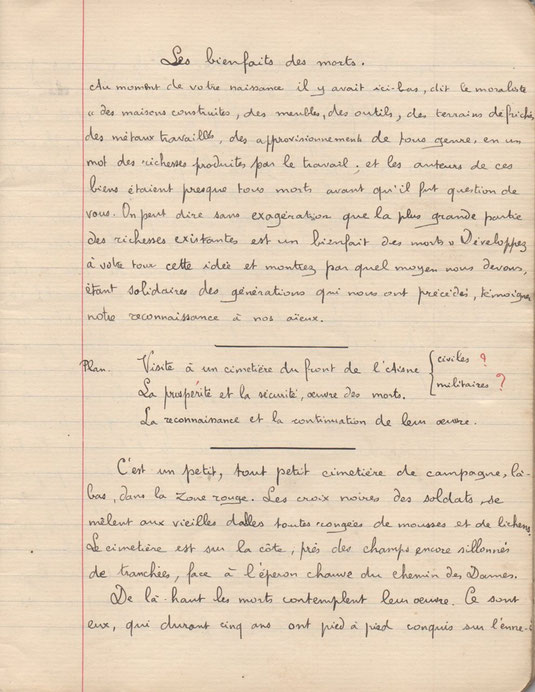 Les bienfaits des morts.
Au moment de votre naissance il y avait ici-bas, dit le moraliste
« des maisons construites, des meubles, des outils, des terrains défrichés
des métaux travaillés, des approvisionnements de tous genre, en un
mot des richesses produites par le travail ; et les auteurs de ces
biens étaient presque tous morts avant qu'il fut question de
vous. On peut dire sans exagération que la plus grande partie
des richesses existantes est un bienfait des morts » Développez
à votre tour cette idée et montrez par quel moyen nous devons,
étant solidaires des générations qui nous ont précédés, témoigner
notre reconnaissance à nos aïeux.
Plan. Visite à un cimetière du front de l'Aisne { civiles ?
militaires ?
La prospérité et la sécurité, œuvre des morts.
La reconnaissance et la continuation de leur œuvre.
C'est un petit, tout petit cimetière de campagne, là-
bas, dans la zone rouge. Les croix noires des soldats, se
mêlent aux vieilles dalles toutes rongées de mousses et de lichens.
Le cimetière est sur la côte, près des champs encore sillonnés
de tranchées, face à l'éperon chauve du chemin des Dames.
De là-haut les morts contemplent leur œuvre. Ce sont
eux, qui durant cinq ans ont pied à pied conquis sur l'enne-